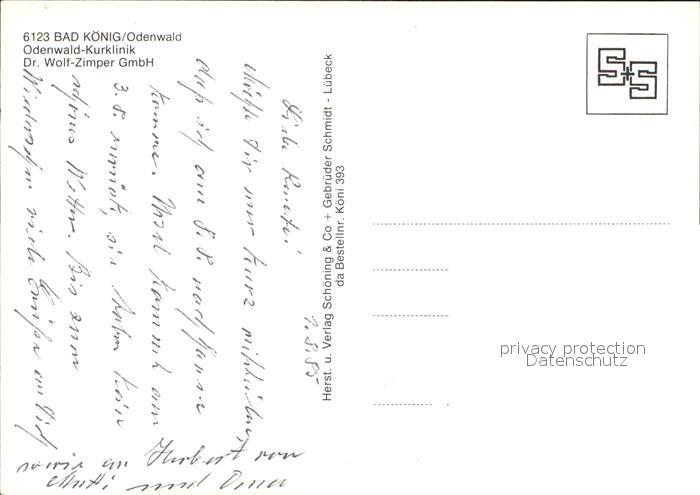 6123 BAD KÖNIG/Odenwald
Odenwald-Kurklinik
Dr. Wolf-Zimper GmbH
S+S
Herst. u. Verlag Schöning & Co + Gebrüder Schmidt - Lübeck
da Bestellnr. Köni 393
1.8.85
Liebe Renate!
Möchte Dir nur kurz mitteilen,
daß ich am 8.8. nach Hause
komme. Horst kommt am
3.8. zurück, sie haben kein
schönes Wetter. Bis zum
Wiedersehn viele Grüße an Dich
sowie an Herbert von
Mutti und Oma
privacy protection
Datenschutz